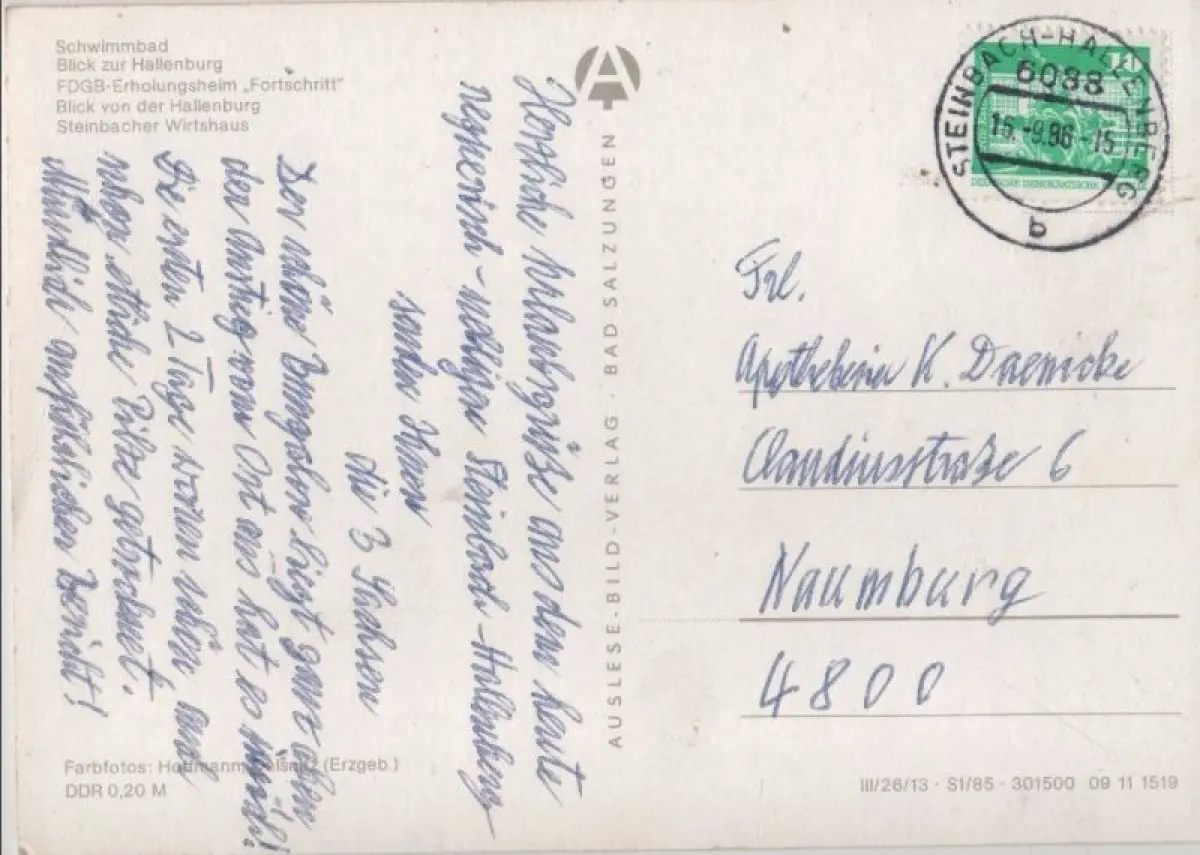 Schwimmbad
Blick zur Hallenburg
FDGB-Erholungsheim „Fortschritt"
Blick von der Hallenburg
Steinbacher Wirtshaus
Herzliche Urlaubsgrüße aus dem heute
regnerisch-nebligen Steinbach-Hallenberg
senden Ihnen
die 3 Sachsen
Der schöne Bungalow liegt ganz oben
der Anstieg vom Ort aus hat es in sich!
Die ersten 2 Tage waren schön, auch
schon etliche Pilze getrocknet.
Mündlich ausführlicher Bericht!
AUSLESE-BILD-VERLAG · BAD SALZUNGEN
STEINBACH-HALLENBERG
6088
15.-9.86-15
b
10
DEUTSCHE DEMOKRATISCHE
Frl.
Apothekerin K. Daemcke
Claudiusstraße 6
Naumburg
4800
Farbfotos: (Erzgeb.)
DDR 0,20 M
III/26/13 · S1/85 · 301500 09 11 1519